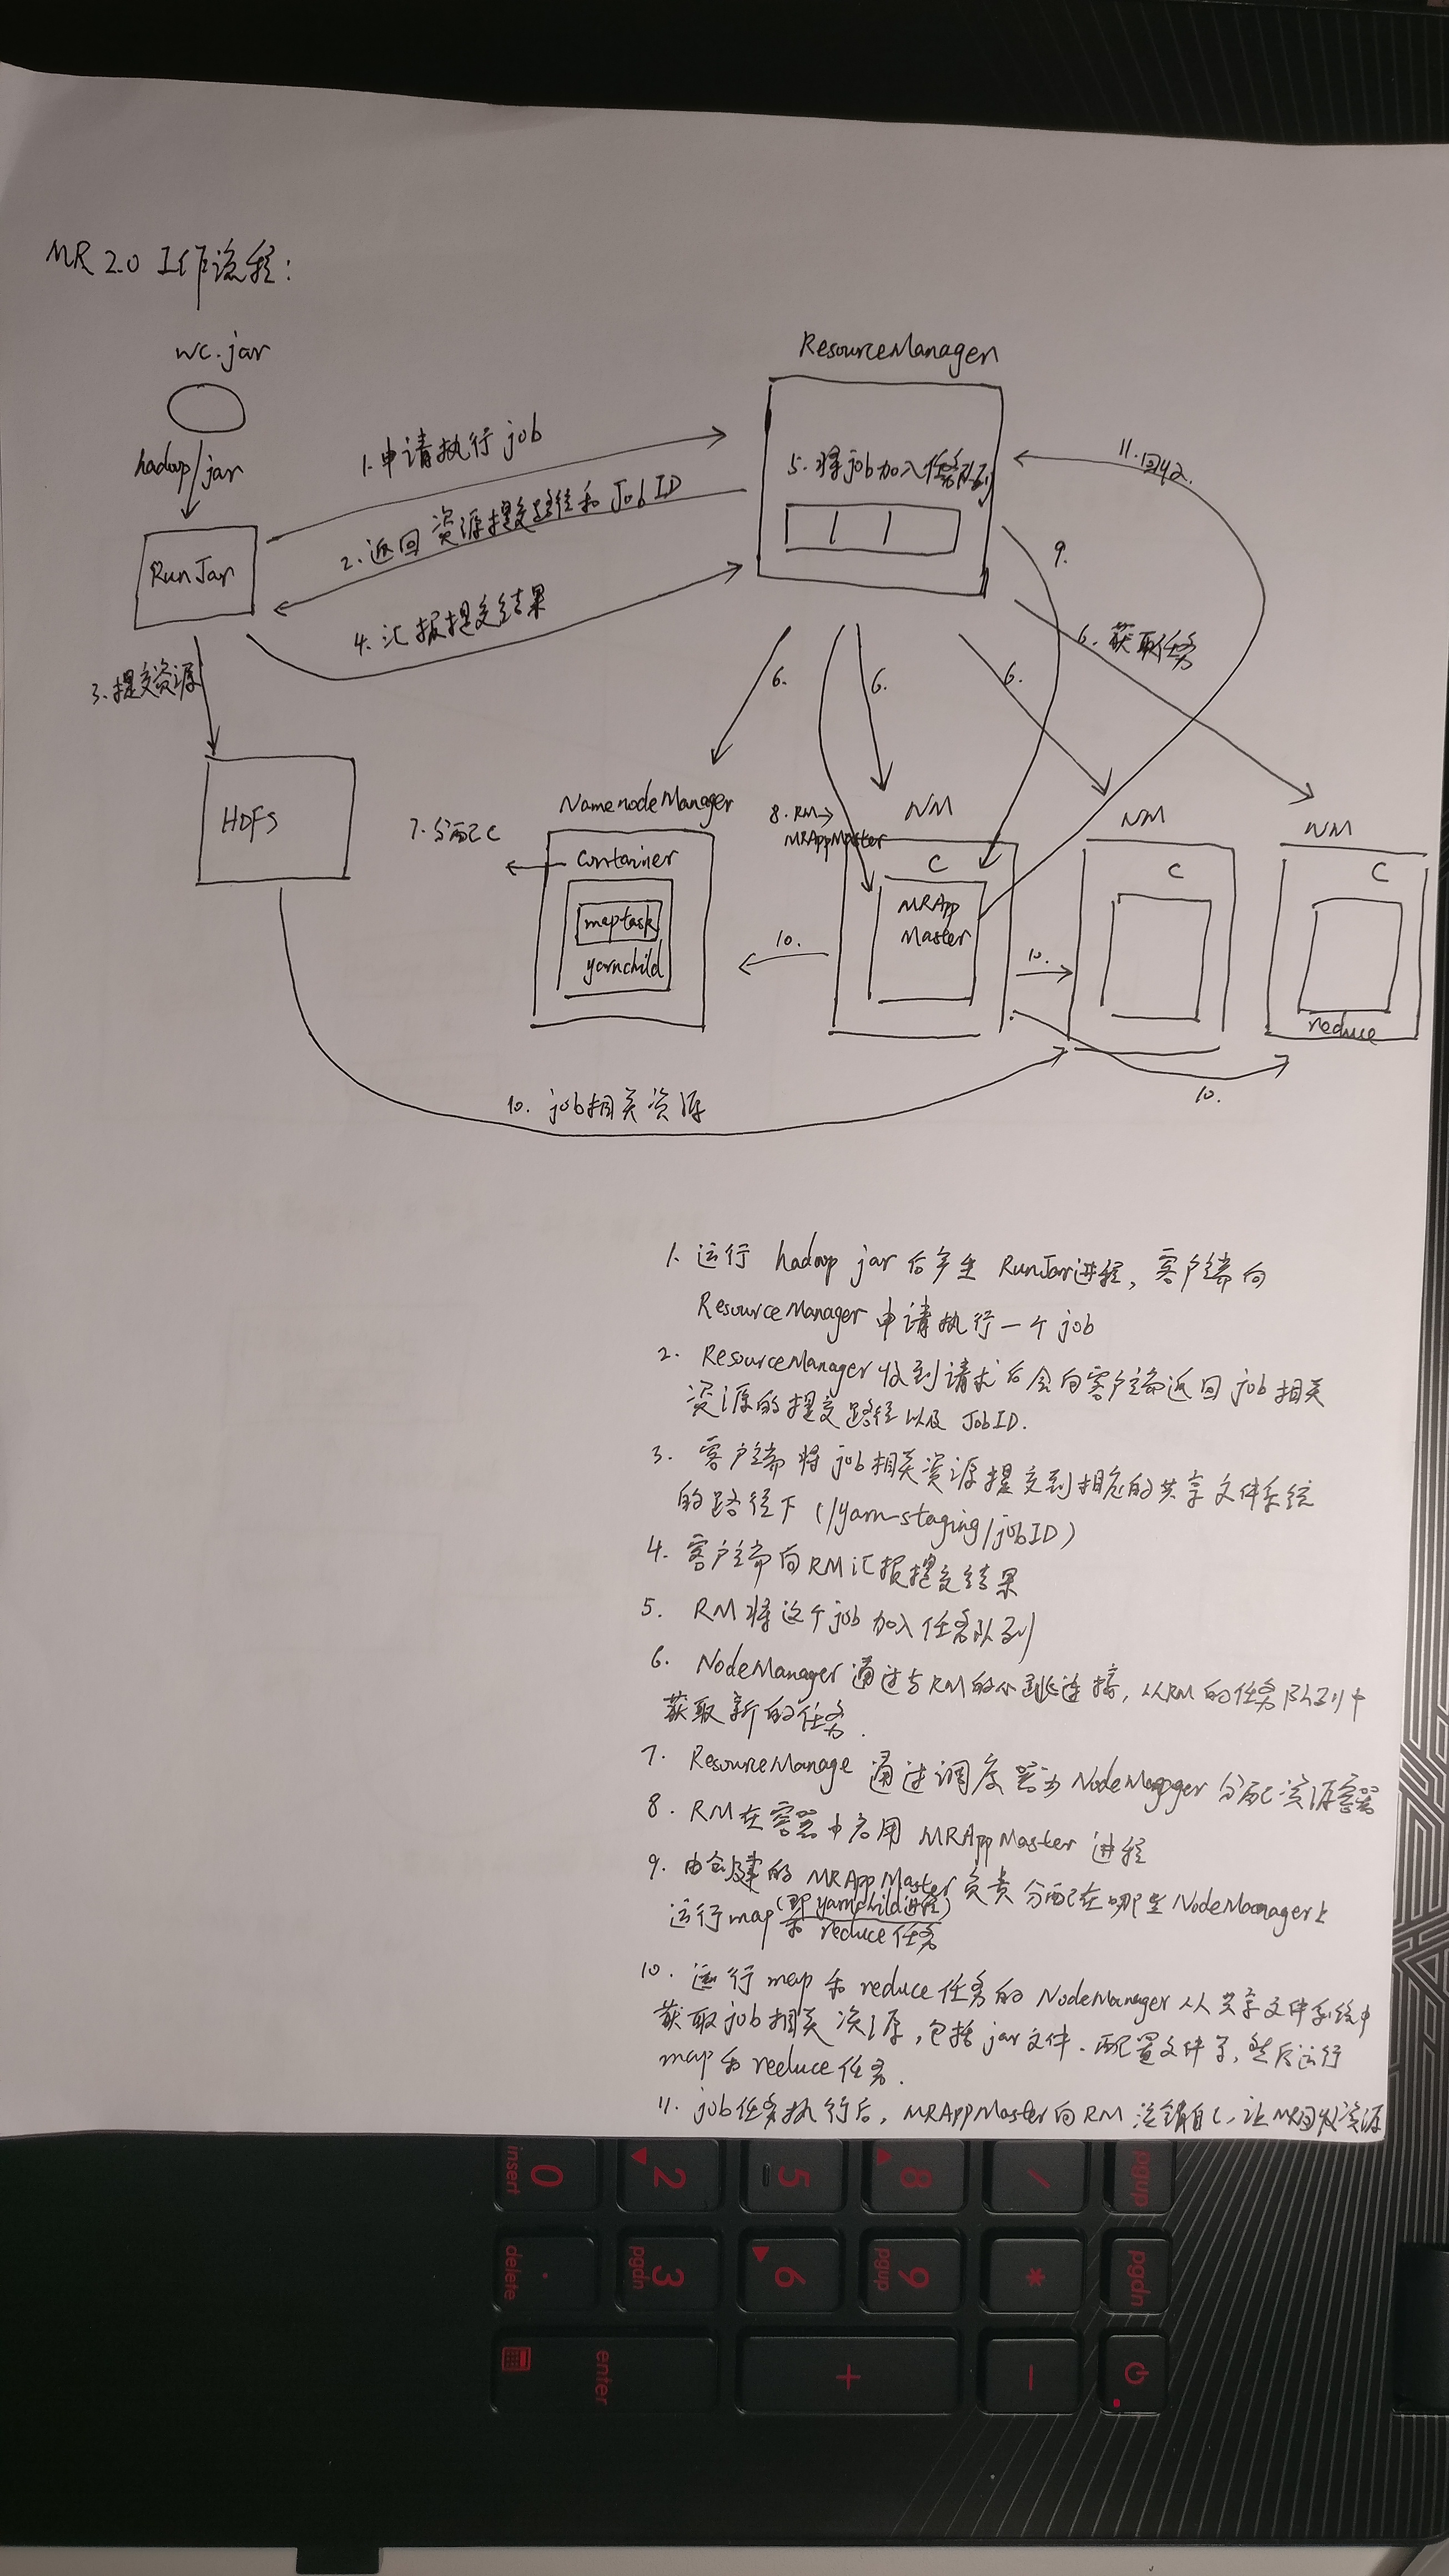 MR 2.0 工作流程:
wc.jar
hadoop jar
RunJar
ResourceManager
1.申请执行job
2.返回资源提交路径和JobID
4.汇报提交结果
5.将job加入任务队列
11.回收.
9.
3.提交资源
6.
6.
6.
6.获取任务
HDFS
7.分配C
NamenodeManager
container
maptask
yarnchild
8.RM→
MRAppMaster
NM
C
MRApp
Master
NM
C
NM
C
reduce
10.
10.
10.
10. job相关资源
1. 运行 hadoop jar后产生 RunJar进程, 客户端向
ResourceManager 申请执行一个job
2. ResourceManager收到请求后会向客户端返回job相关
资源的提交路径以及 JobID.
3. 客户端将job相关资源提交到相应的共享文件系统
的路径下 (/yarn-staging/jobID)
4. 客户端向RM汇报提交结果
5. RM将这个job加入任务队列
6. NodeManager通过与RM的心跳连接, 从RM的任务队列中
获取新的任务.
7. ResourceManage 通过调度器为NodeManager分配资源容器
8. RM在容器中启用 MRAppMaster 进程
9. 由创建的 MRAppMaster负责分配在哪些NodeManager上
运行map(即yarnchild进程)
和 reduce任务
10. 运行map和reduce任务的NodeManager从共享文件系统中
获取job相关资源, 包括jar文件、配置文件等, 然后运行
map和reduce任务.
11. job任务执行后, MRAppMaster向RM注销自己, 让MR回收资源
0
insert
2
5
8
/
pgup
delete
.
3
pgdn
6
9
pgup
*
pgdn
enter
+
-